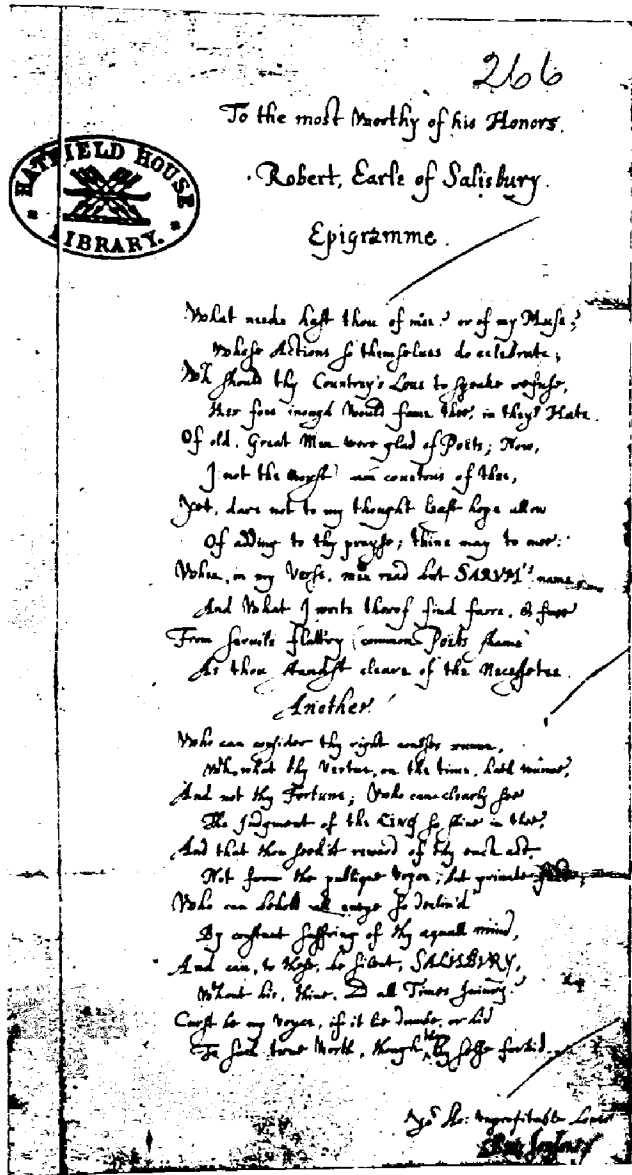 266
HATFIELD HOUSE LIBRARY.
To the most Worthy of his Honors.
Robert, Earle of Salisbury.
Epigramme.
What neede hast thou of mee? or of my Muse?
Whose Actions so themselues do celebrate;
Wch should thy Countrey's Loue to speake refuse,
Her foes inough would fame thee, in theyr Hate.
Of old, Great Men were glad of Poëts; Now,
I not the worst am couetous of thee,
Yet, dare not to my thought least hope allow
Of adding to thy prayse; thine may to mee:
When, in my Verse, men read but SARVM's name
And What I write therof find farre, & free
From seruile flattry (common Poëts shame)
As thou standst cleare of the Necessitee.
Another.
Who can consider thy right courses runne,
Wth what thy Vertue, on the time, hath wunne,
And not thy Fortune; Who can clearly see
The Judgment of the KING so shine in thee;
And that thou seek'st reward of thy each act,
Not from the publique Voyce; but private
Who can behold all enuye so declin'd
By constant suffring of thy æquall mind,
And can, to these, be silent, SALISBVRY,
Wthout his, thine, and all Times Iniury
Curst be my Voyce, if it be dumbe, or hid
To such true Worth, though thou thy selfe forbid.
Yor Ho: vnprofitable Louer
Ben: Jonson